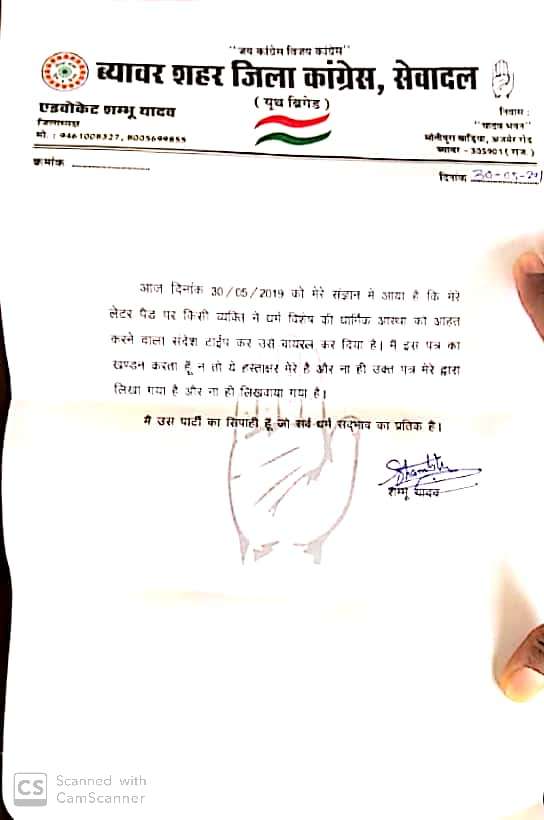 "जय कांग्रेस विजय कांग्रेस"
ब्यावर शहर जिला कांग्रेस, सेवादल
( यूथ ब्रिगेड )
एडवोकेट शम्भू यादव
जिलाध्यक्ष
मो. : 9461008327, 8005699855
निवास :
"यादव भवन"
मोतीपुरा बाड़िया, अजमेर रोड
ब्यावर - 305901 ( राज. )
क्रमांक
दिनांक 30-05-201
आज दिनांक 30/05/2019 को मेरे संज्ञान मे आया है कि मेरे
लेटर पैड पर किसी व्यक्ति ने धर्म विशेष की धार्मिक आस्था को आहत
करने वाला संदेश टाईप कर उसे वायरल कर दिया है। मै इस पत्र का
खण्डन करता हूँ न तो ये हस्ताक्षर मेरे है और ना ही उक्त पत्र मेरे द्वारा
लिखा गया है और ना ही लिखवाया गया है।
मै उस पार्टी का सिपाही हूँ जो सर्व धर्म सद्भाव का प्रतिक है।
शम्भू यादव
CS Scanned with
CamScanner